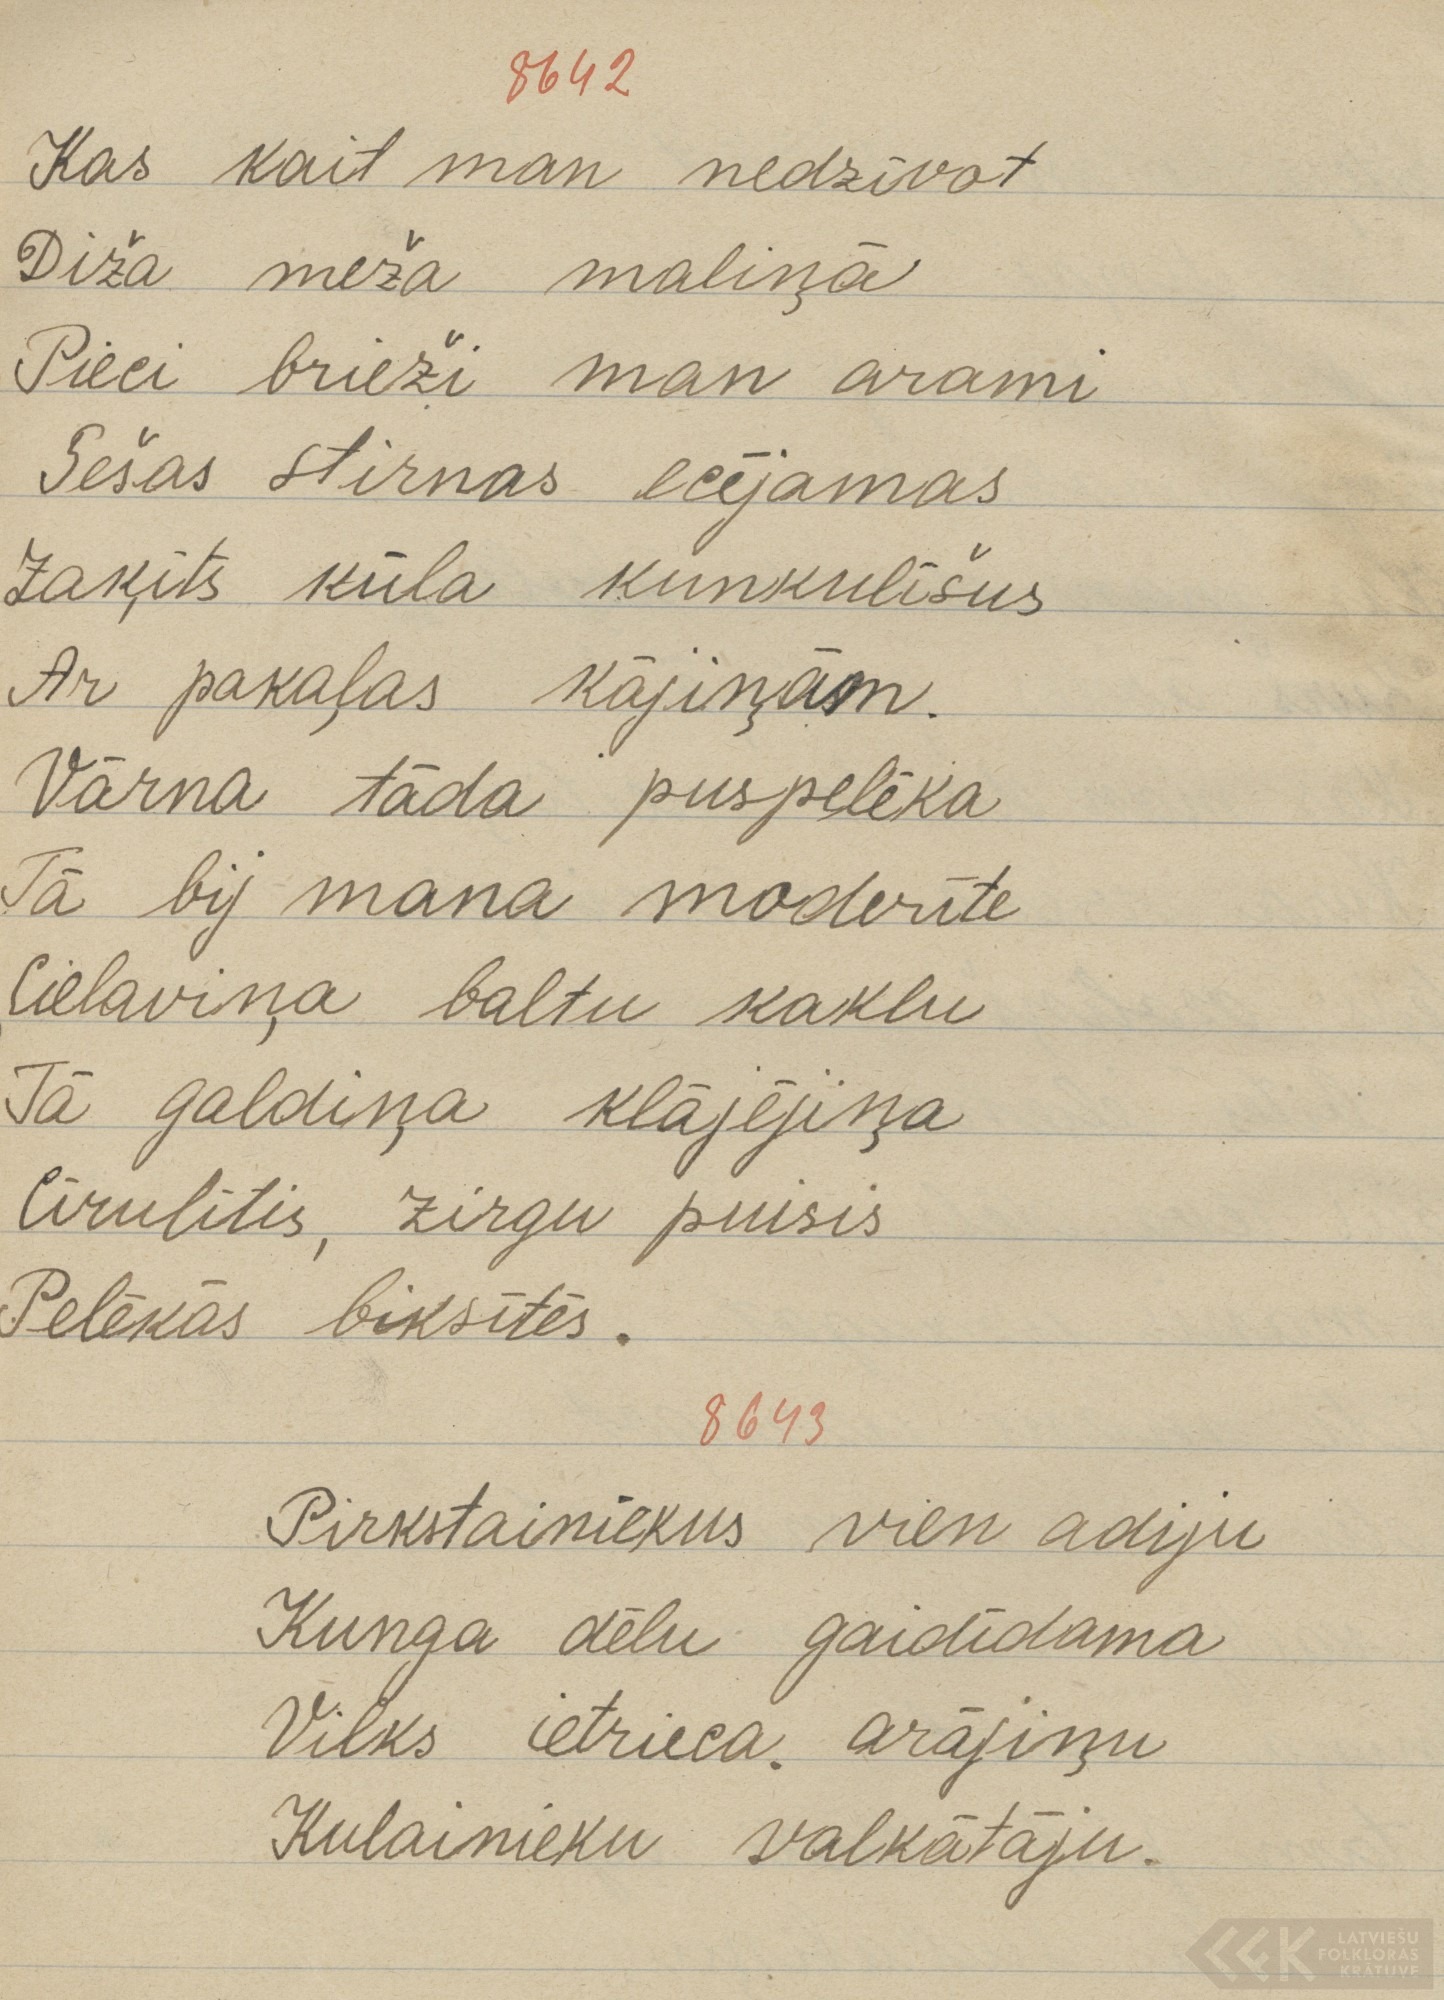 8642
Kas kait man nedzīvot
Diža meža maliņā
Pieci brieži man arami
Sešas stirnas ecējamas
Zaķīts kūla kunkulīšus
Ar pakaļas kājiņām.
Vārna tāda puspelēka
Tā bij mana moderīte
Cielaviņa baltu kaklu
Tā galdiņa klājējiņa
Cīrulītis, zirgu puisis
Pelēkās biksītēs.
8643
Pirkstainiekus vien adiju
Kunga dēlu gaidīdama
Vilks ietrieca. arājiņu
Kulainieku valkātāju.
LATVIEŠU
FOLKLORAS
KRĀTUVE